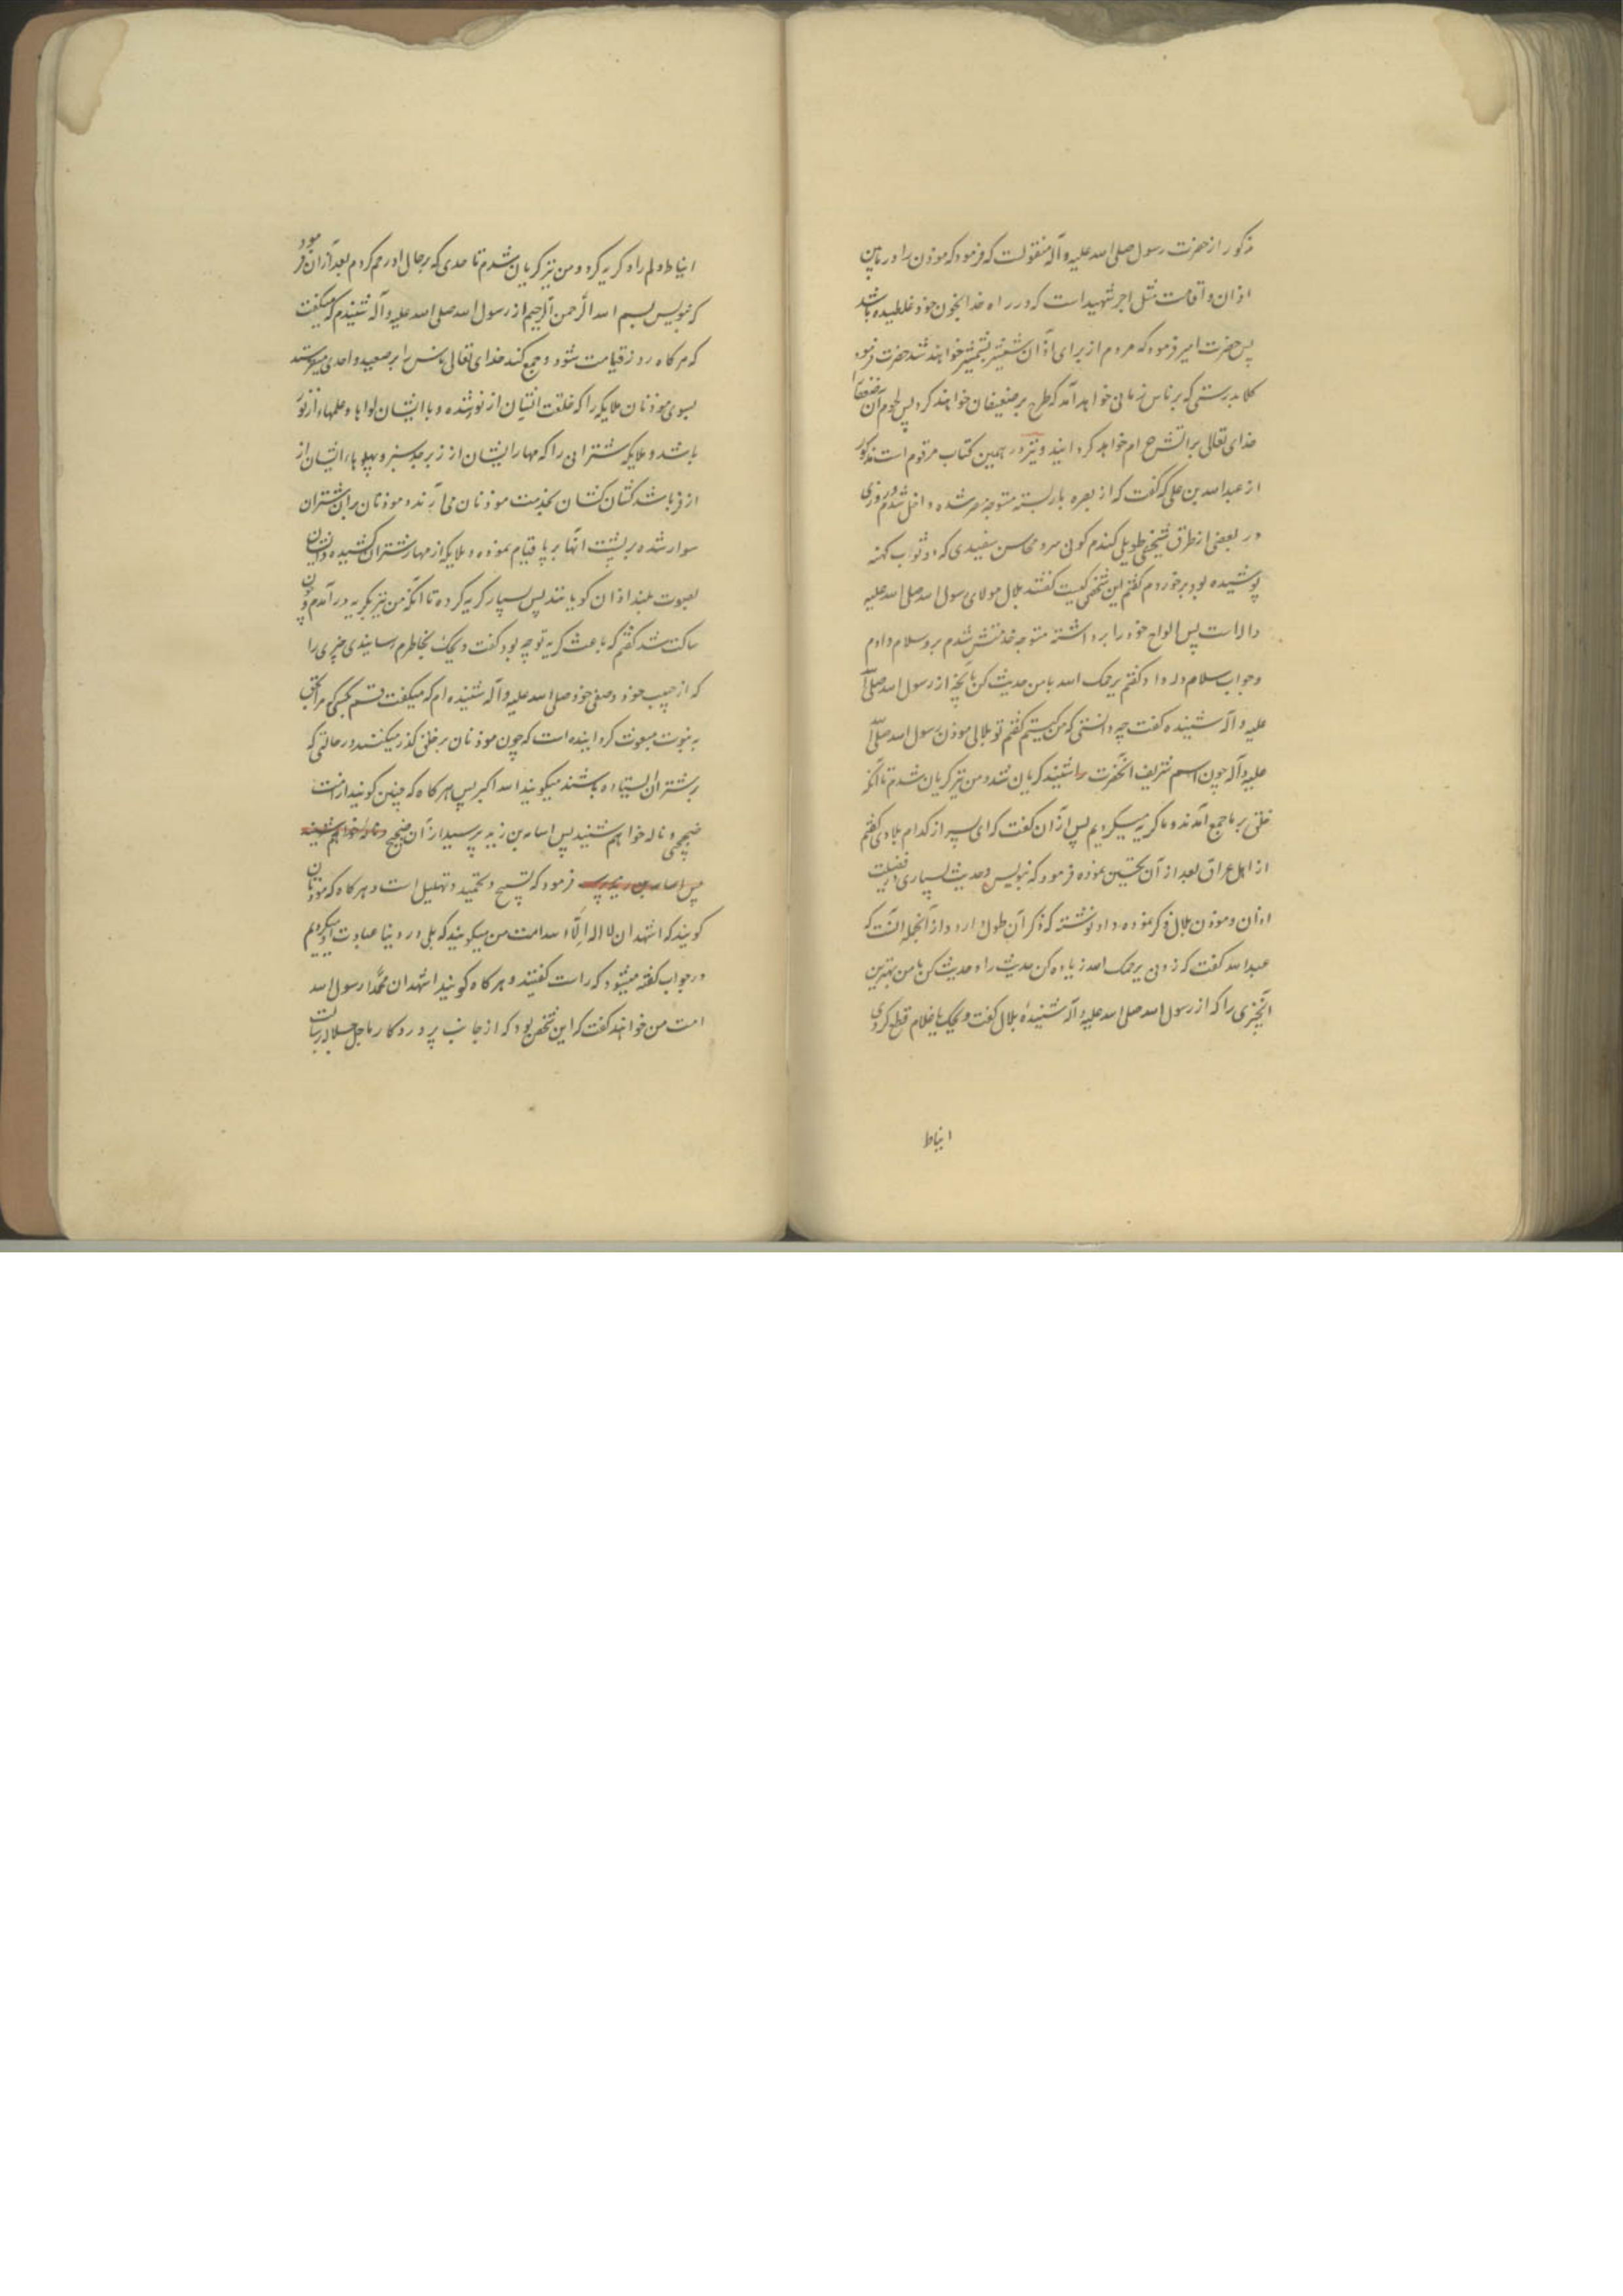 مذکور از حضرت رسول صلی الله علیه و آله منقولست که فرمود که موذن را در مابین
اذان و اقامت مثل اجر شهید است که در راه خدا بخون خود غلطیده باشد
پس حضرت امیر فرمود که مردم از برای اذان شمشیر بشمشیر خواهند شد حضرت فرمود
کلا بدرستی که بر ناس زمانی خواهد آمد که طرح بر ضعیفان خواهند کرد پس لحوم آن ضعفا را
خدای تعالی بر آتش حرام خواهد کردانید و نیز در همین کتاب مرقوم است مذکور
از عبدالله بن علی که گفت که از بصره بار بسته متوجه مصر شده داخل شدم و روزی
در بعضی از طرق شیخی طویلی گندم کونی سر و محاسن سفیدی که دو ثوب کهنه
پوشیده بود برخوردم گفتم این شخص کیست گفتند بلال مولای رسول الله صلی الله علیه
و آله است پس الواح خود را برداشته متوجه خدمتش شدم برو سلام دادم
و جواب سلام داد گفتم یرحمک الله با من حدیث کن بآنچه از رسول الله صلی الله
علیه و آله شنیده گفت چه دانستی که من کیستم گفتم تو بلالی موذن رسول الله صلی الله
علیه و آله چون اسم شریف آنحضرت را شنید کریان شد و من نیز کریان شدم تا آنکه
خلق بر ما جمع آمدند و ما کریه میکردیم پس از آن گفت که ای پسر از کدام بلادی گفتم
از اهل عراق بعد از آن تحسین نموده فرمود که بنویس و حدیث بسیاری در فضیلت
اذان و موذن بلال ذکر نموده و او نوشته که ذکر آن طول دارد و از آنجمله آنست که
عبدالله گفت که زدنی یرحمک الله زیاده کن حدیث را و حدیث کن با من بهترین
آنچیزی را که از رسول الله صلی الله علیه و آله شنیدهٔ بلال گفت ویحک یا غلام قطع کردی
انیاط
انیاط دلم را و کریه کرد و من نیز کریان شدم تا حدی که بر حال او رحم کردم بعد از آن فرمود
که بنویس بسم الله الرحمن الرحیم از رسول الله صلی الله علیه و آله شنیدم که میگفت
که هرکاه روز قیامت شود و جمع کند خدای تعالی ناس را بر صعید واحدی میفرستد
بسوی موذنان ملایکه را که خلقت ایشان از نور شده و با ایشان لواها و علمهاء از نور
باشد و ملایکه شترانی را که مهار ایشان از زبرجد سبز و پهلوهاء ایشان از
باشد کشان کشان بخدمت موذنان می آرند و موذنان بر آن شتران
سوار شده بر پشت آنها بر پا قیام نموده و ملایکه از مهار شتران کشیده و ایشان
بصوت بلند اذان کویانند پس بسیار کریه کرده تا آنکه من نیز بکریه در آمدم و چون
ساکت شد گفتم که باعث کریه تو چه بود گفت ویحک بخاطرم رسانیدی چیزی را
که از حبیب خود و صفی خود صلی الله علیه و آله شنیده ام که میگفت قسم بکسی که مرا بحق
به نبوت مبعوث کردانیده است که چون موذنان بر خلق گذر میکنند در حالتی که
بر شتران ایستاده باشند میگویند الله اکبر پس هرکاه که چنین گویند از امت
ضجیجی و ناله خواهم شنید پس اسامه بن زید پرسید از آن ضجیج
فرمود که تسبیح و تحمید و تهلیل است و هرکاه که موذنان
گویند که اشهد ان لا اله الا الله امت من میگویند که بلی در دنیا عبادت او میکردیم
در جواب گفته میشود که راست گفتید و هرکاه گویند اشهد ان محمدا رسول الله
امت من خواهند گفت که این شخص بود که از جانب پروردکار ما جل جلاله برسالت